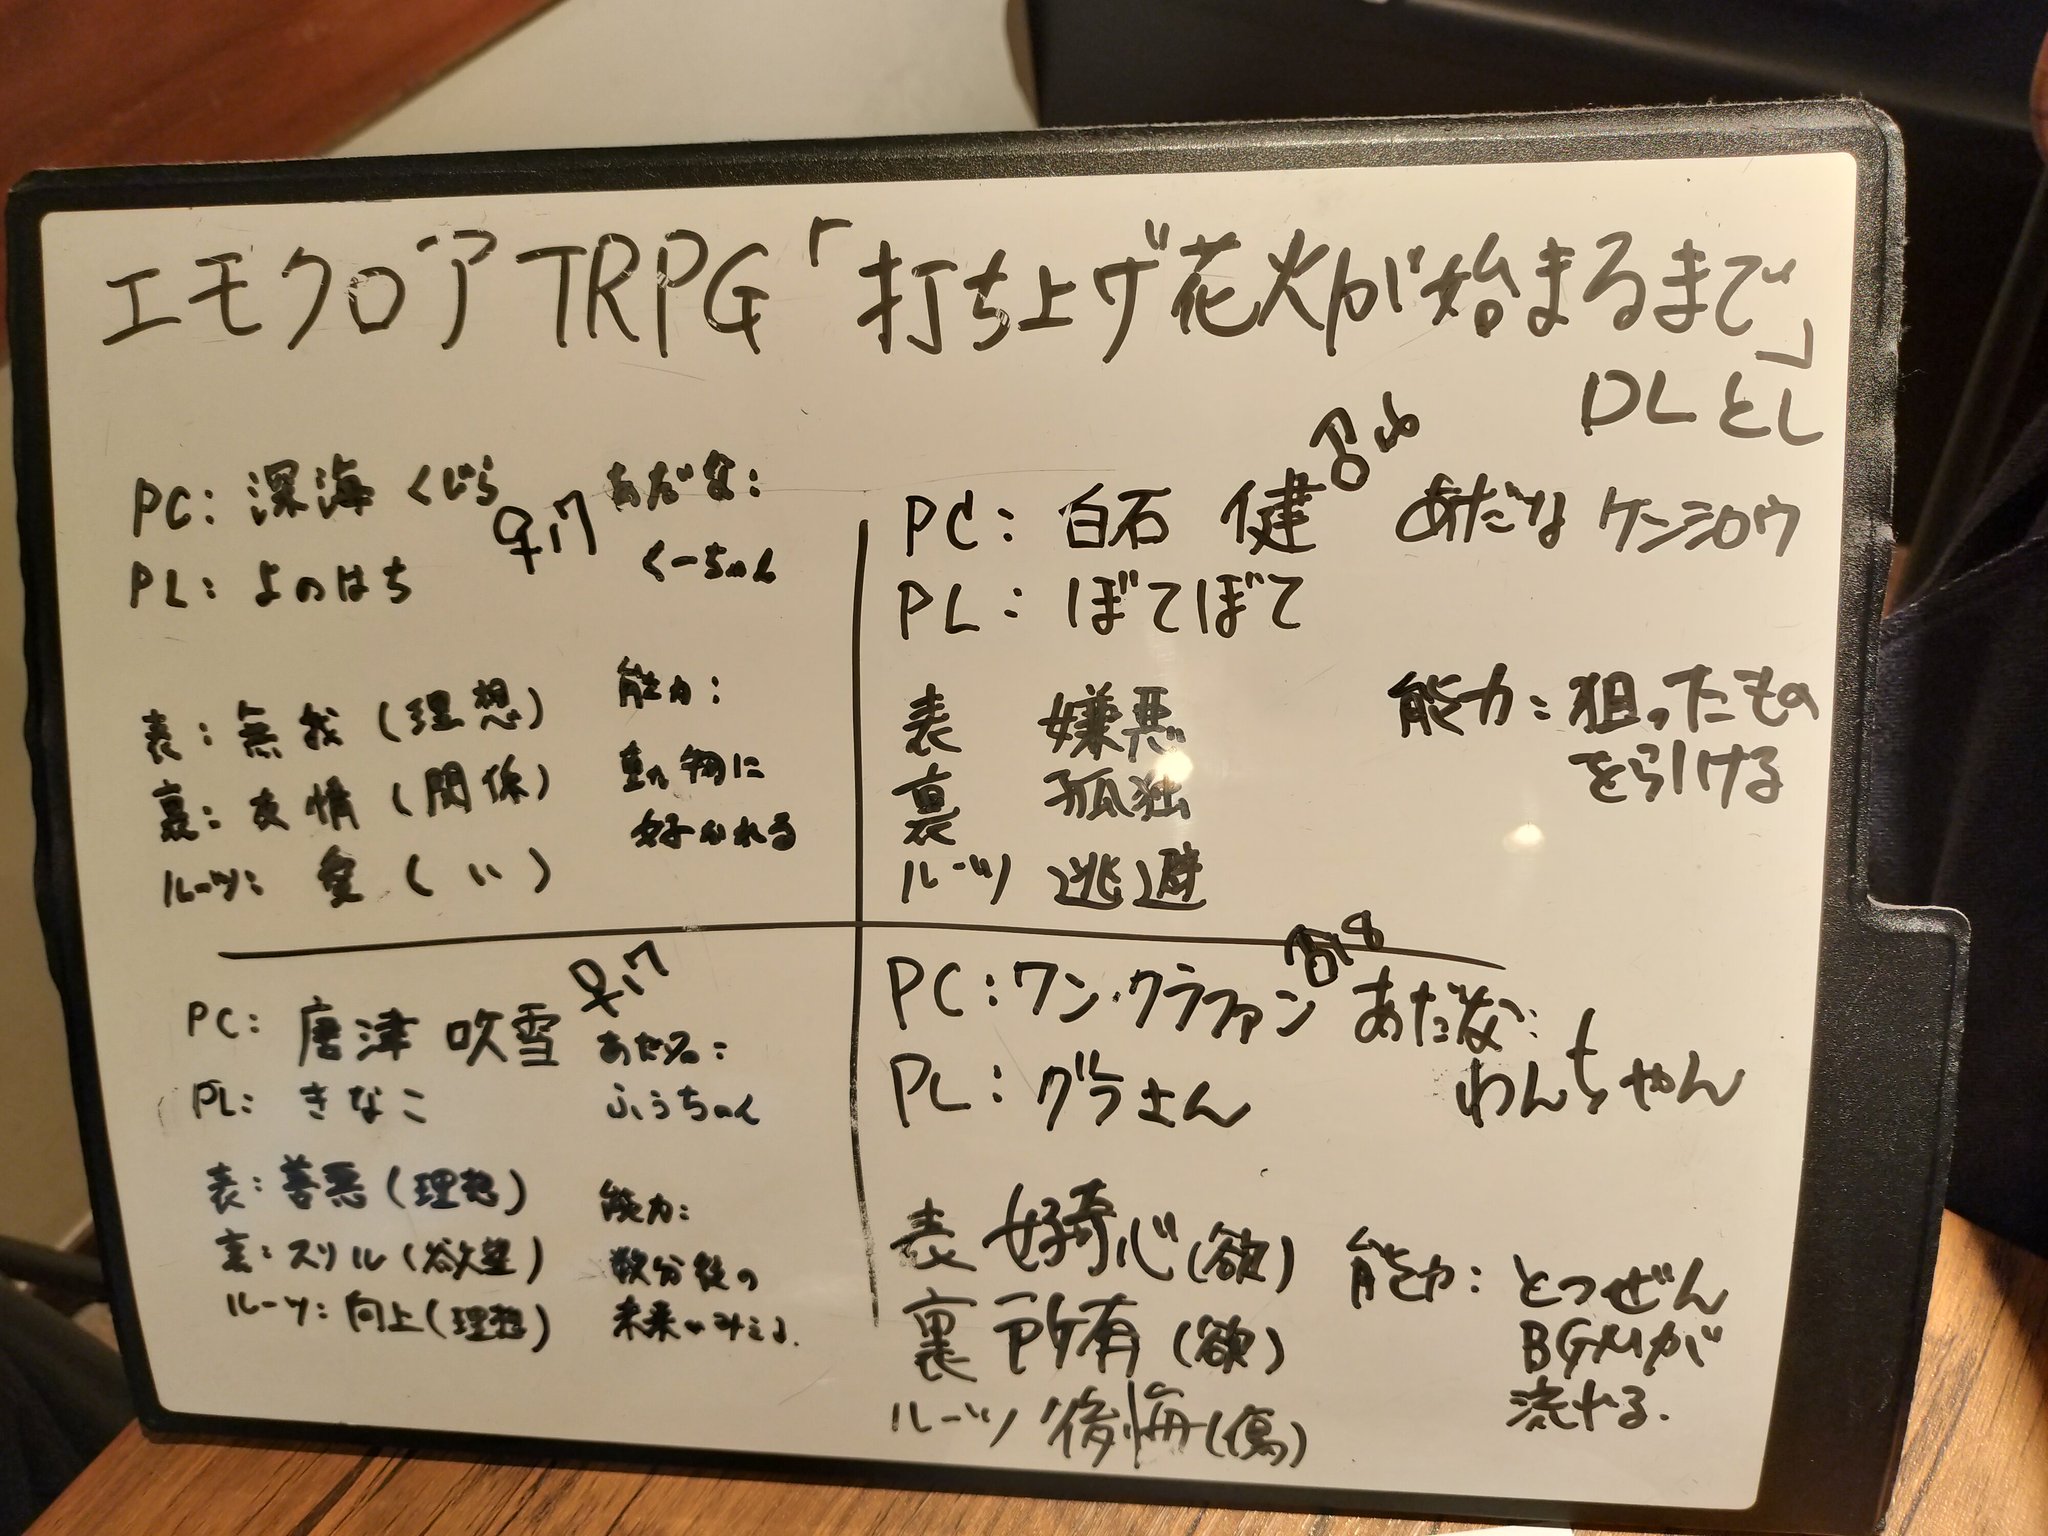 エモクロアTRPG「打ち上げ花火が始まるまで」
DLとし
PC: 深海 くじら ♀17 あだな:
くーちゃん
PL: よのはち
表: 無我(理想)
裏: 友情(関係)
ルーツ: 愛(〃)
能力:
動物に
好かれる
PC: 白石 健 ♂16 あだな ケンシロウ
PL: ぼてぼて
表 嫌悪
裏 孤独
ルーツ 逃避
能力: 狙ったもの
を引ける
PC: 唐津 吹雪 ♀17
あだ名:
ふぅちゃん
PL: きなこ
表: 善悪(理想)
裏: スリル(欲望)
ルーツ: 向上(理想)
能力:
数分後の
未来がみえる.
PC: ワン・クラファン ♂18 あだな:
わんちゃん
PL: グラさん
表 好奇心(欲)
裏 所有(欲)
ルーツ 後悔(傷)
能力: とつぜん
BGMが
流れる.